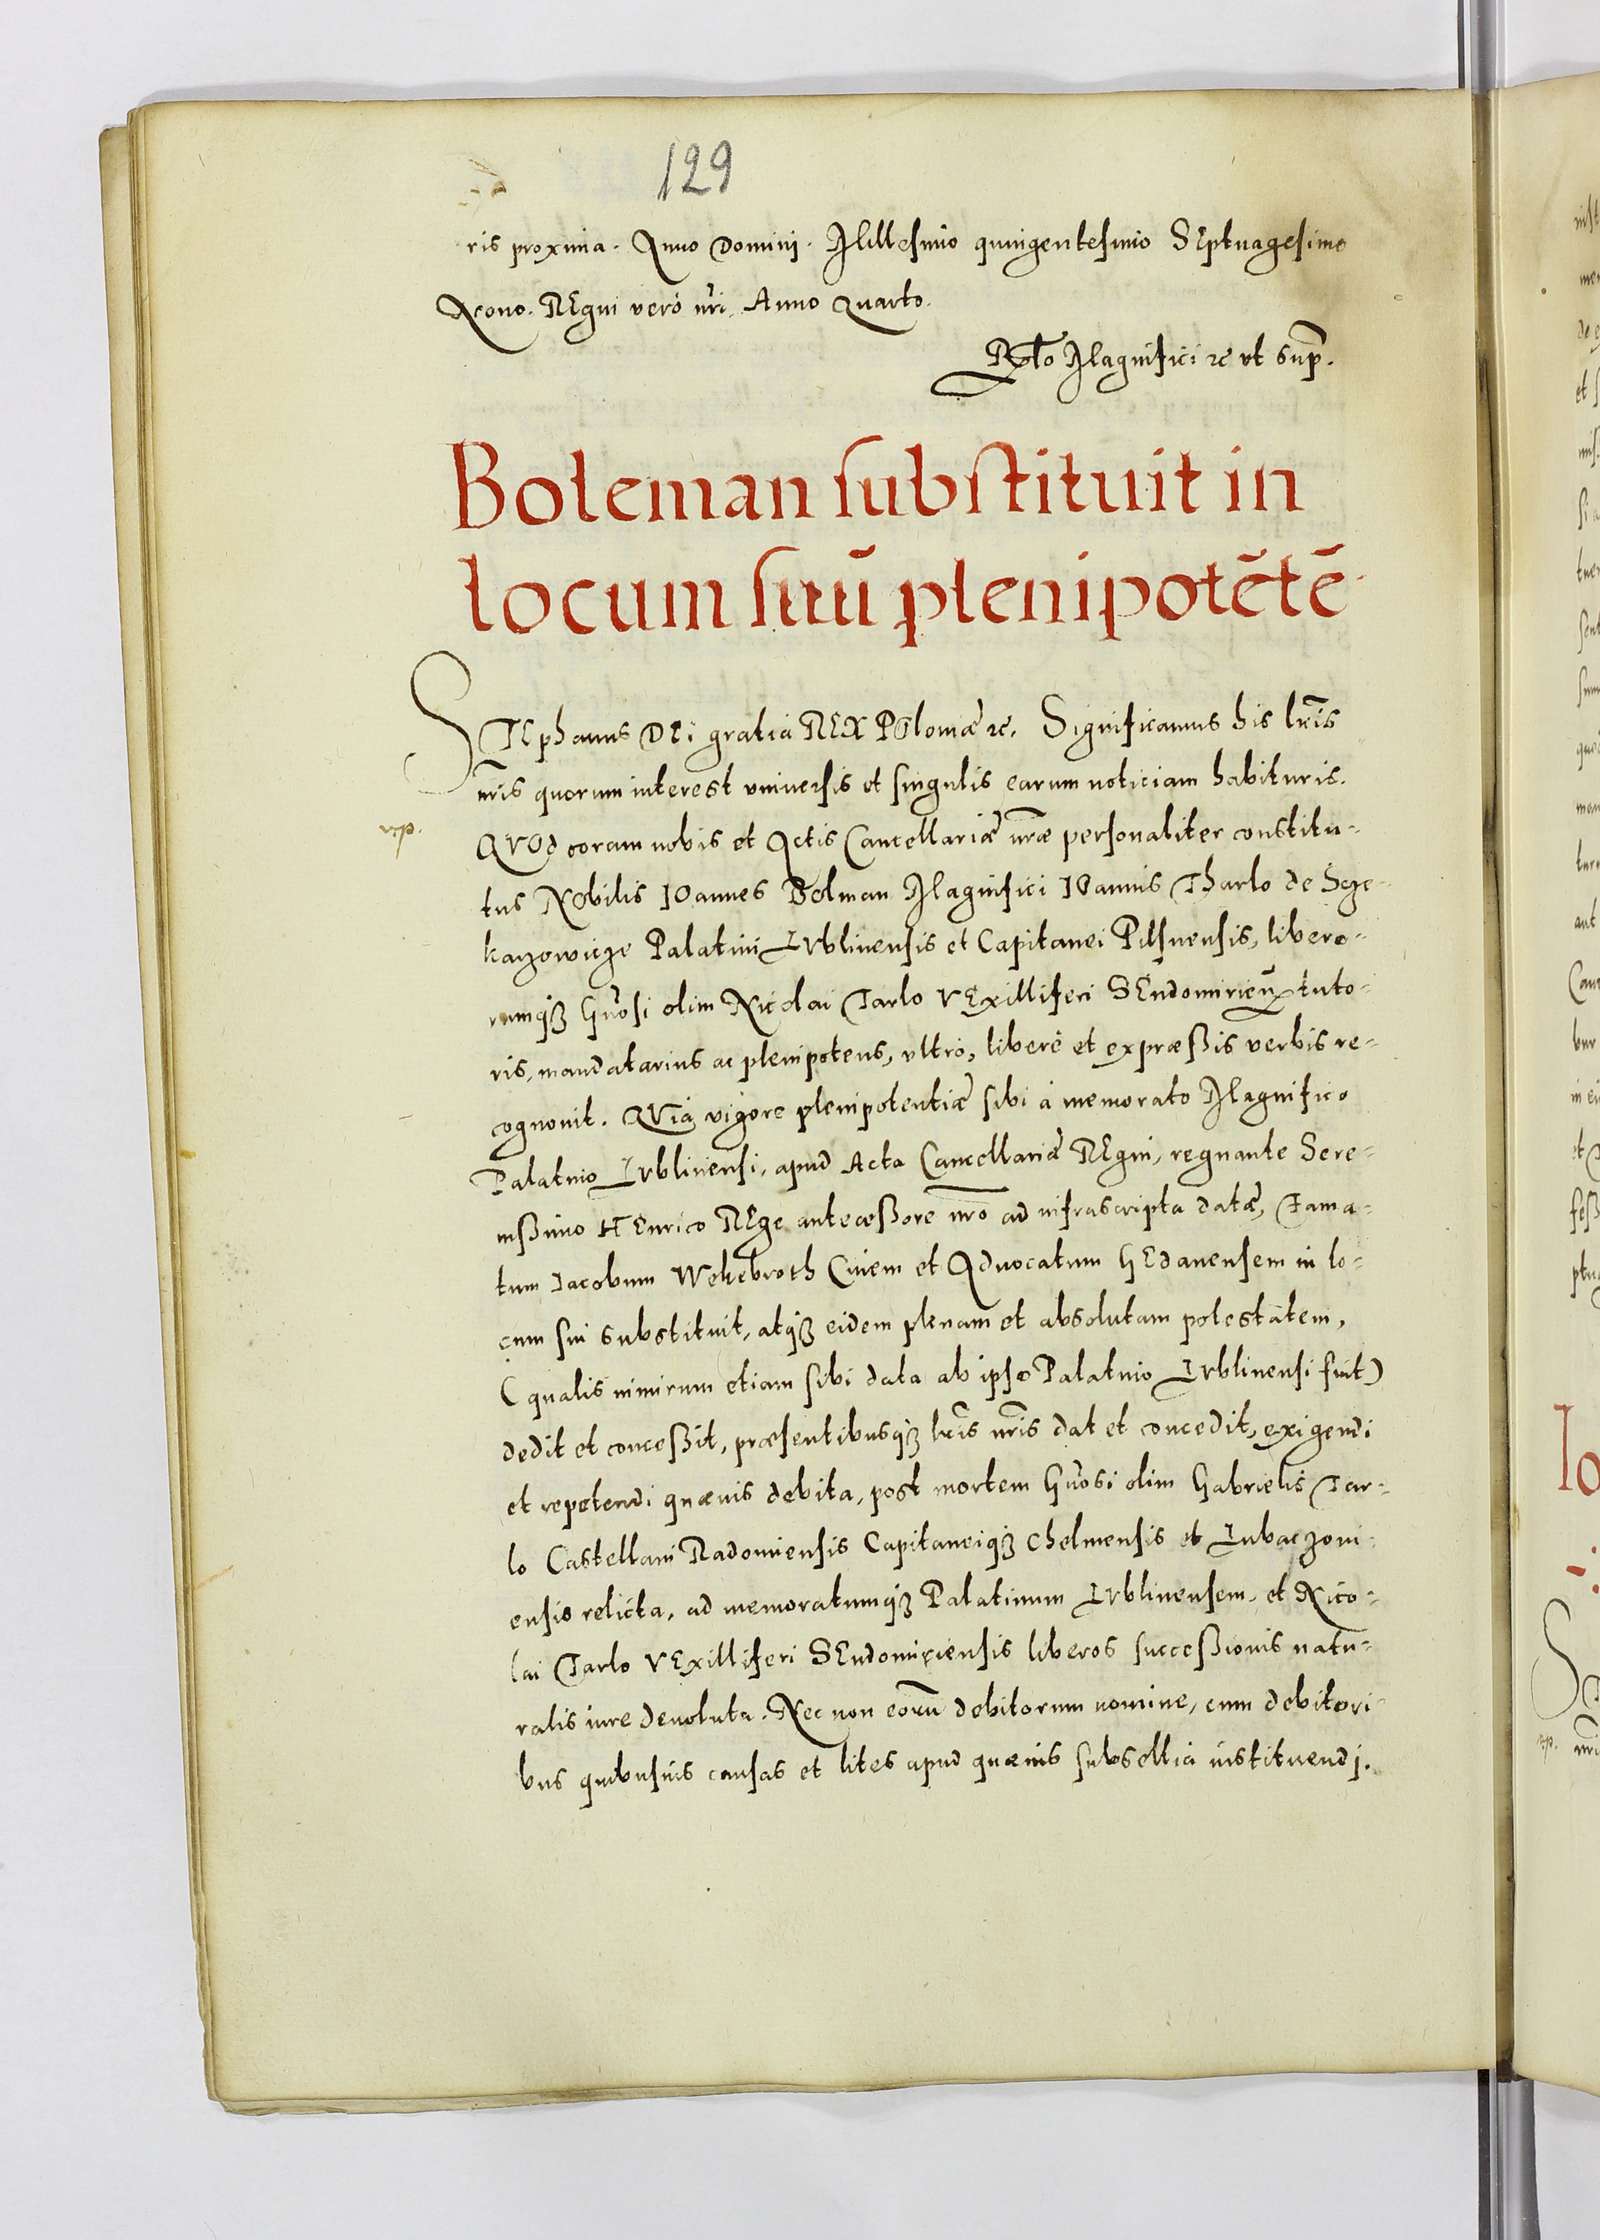 129
ris proxima. Anno Domini. Millesimo quingentesimo SEptuagesimo
Nono. REgni vero nr̃i. Anno Quarto.
Rlo Magnifici ꝛc vt sup̃.
Boleman substituit in
locum suũ plenipotẽtẽ.
STEphanus DEi gratia REX POloniæ ꝛc. Significamus his lr̃is
nr̃is quorum interest vniuersis et singulis earum noticiam habituris.
QVOd coram nobis et Actis Cancellariæ nr̃æ personaliter constitu-
tus NObilis IOannes Bolman Magnifici IOannis Tharlo de Scze-
karzowicze Palatini LVblinensis et Capitanei Pilsnensis, libero-
rumqȝ Gñosi olim Nicolai Tarlo VExilliferi SEndomirieñ tuto-
ris, mandatarius ac plenipotens, vltro, libere et expræßis verbis re-
cognouit. QVia vigore plenipotentiæ sibi à memorato Magnifico
Palatino LVblinensi, apud Acta Cancellariæ REgni, regnante Sere-
nißimo HEnrico REge anteceßore nr̃o ad infrascripta datæ, Fama-
tum Iacobum Wekebroth Ciuem et Aduocatum GEdanensem in lo-
cum sui substituit, atqȝ eidem plenam et absolutam potestatem,
(qualis nimirum etiam sibi data ab ipso Palatino LVblinensi fuit)
dedit et conceßit, præsentibusqȝ lr̃is nr̃is dat et concedit, exigendi
et repetendi quæuis debita, post mortem Gñosi olim Gabrielis Tar-
lo Castellani Radomiensis Capitaneiqȝ Chelmensis et Lubaczoui-
ensis relicta, ad memoratumqȝ Palatinum LVblinensem, et Nico-
lai Tarlo VExilliferi SEndomiriensis liberos successionis natu-
ralis iure deuoluta. Nec non eorũ debitorum nomine, cum debitori-
bus quibusuis causas et lites apud quæuis subsellia instituendi.